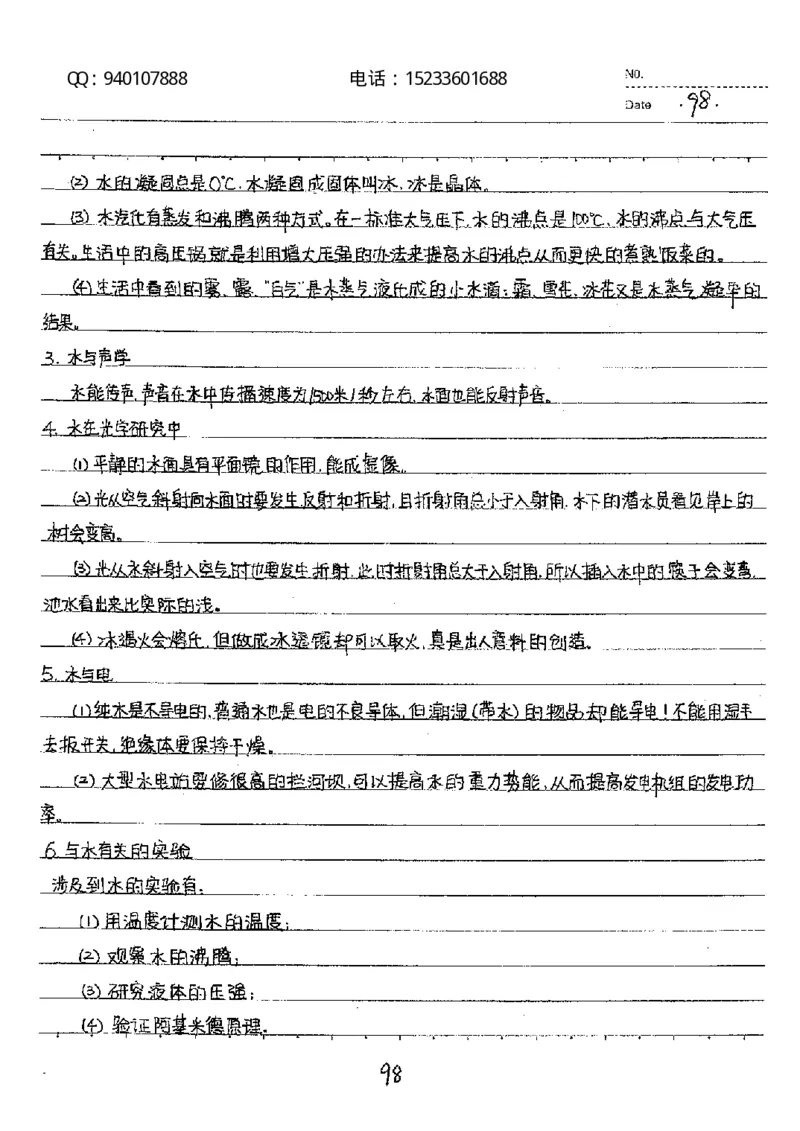 QQ：940107888 电话：15233601688 No.
Date ·98·
(2) 水的凝固点是0℃.水凝固成固体叫冰.冰是晶体。
(3) 水汽化有蒸发和沸腾两种方式。在一标准大气压下.水的沸点是100℃.水的沸点与大气压
有关。生活中的高压锅就是利用增大压强的办法来提高水的沸点从而更快的煮熟饭菜的。
(4)生活中看到的雾、露、"白气"是水蒸气液化成的小水滴；霜、雪花、冰花又是水蒸气凝华的
结果。
3. 水与声学
水能传声.声音在水中传播速度为1500米/秒左右.水面也能反射声音。
4. 水在光学研究中
(1)平静的水面具有平面镜的作用.能成虚像。
(2)光从空气斜射向水面时要发生反射和折射.且折射角总小于入射角.水下的潜水员看见岸上的
树会变高。
(3)光从水斜射入空气时也要发生折射.此时折射角总大于入射角.所以插入水中的筷子会变弯.
池水看出来比实际的浅。
(4)冰遇火会熔化.但做成冰透镜却可以取火.真是出人意料的创造。
5. 水与电
(1)纯水是不导电的.普通水也是电的不良导体.但潮湿(带水)的物品却能导电！不能用湿手
去扳开关.绝缘体要保持干燥。
(2)大型水电站要修很高的拦河坝.可以提高水的重力势能.从而提高发电机组的发电功
率。
6.与水有关的实验
涉及到水的实验有:
(1)用温度计测水的温度;
(2)观察水的沸腾;
(3)研究液体的压强;
(4)验证阿基米德原理。
98